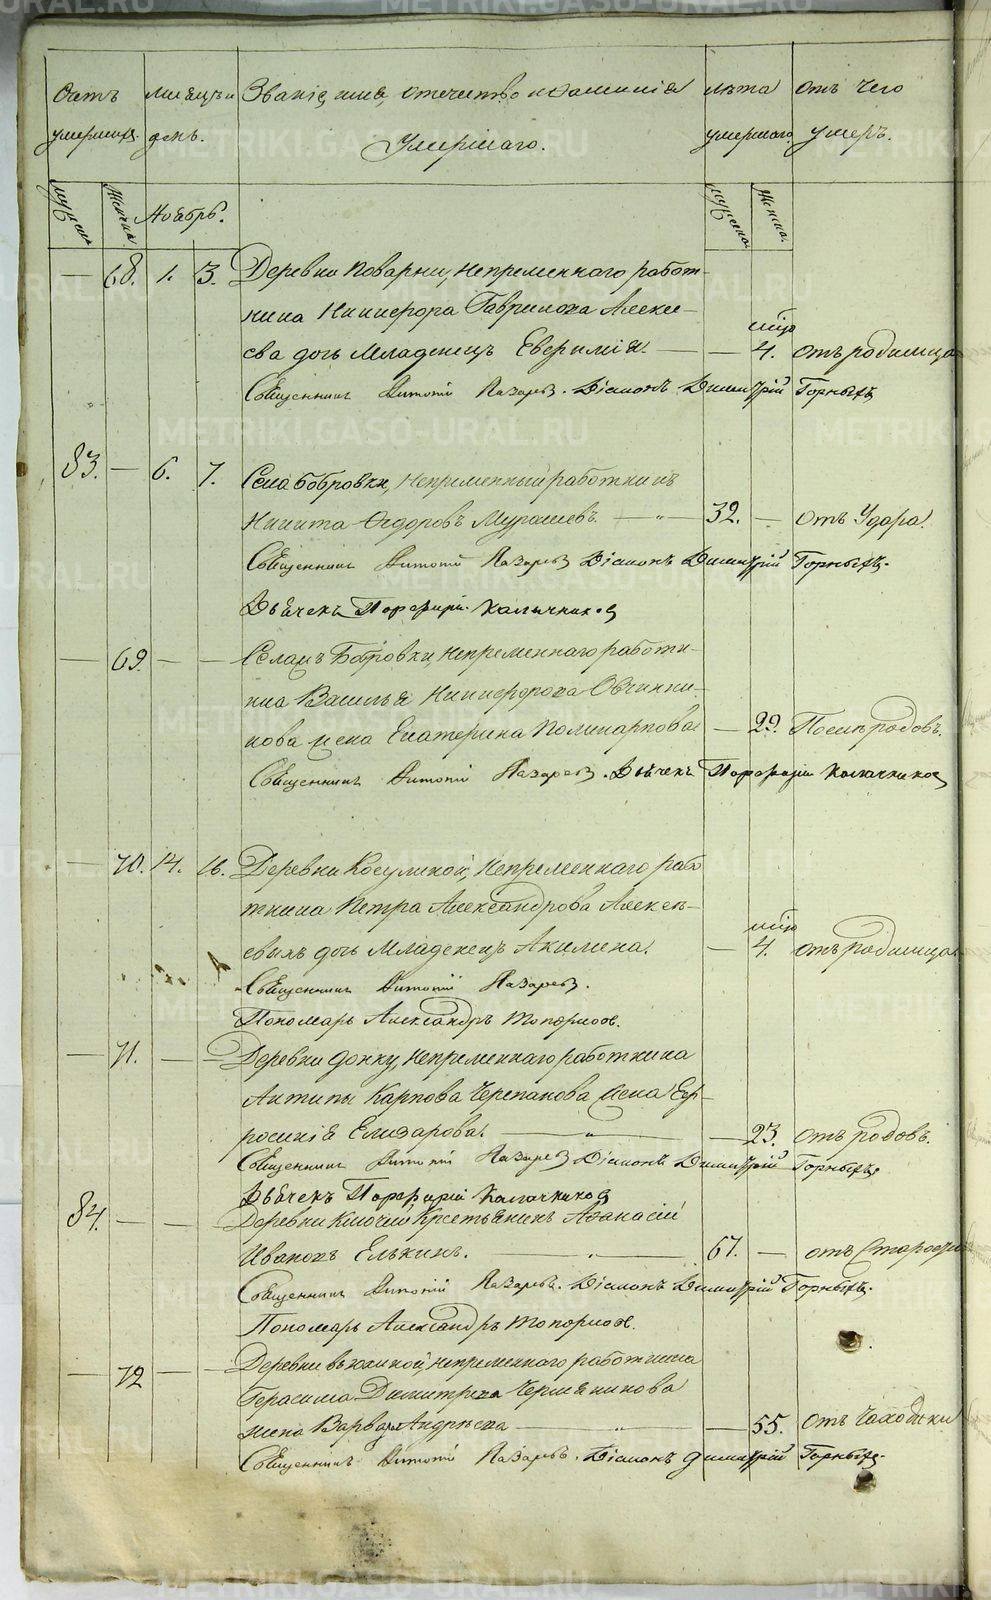 Счетъ умершихъ.
Месяцъ и день.
Званіе, имя, отечество и фамилія Умершаго.
лета умершаго.
отъ чего умеръ.
мужеска
Женска
Ноябрь.
мужеска.
Женска.
— 68. 1. 3. Деревни Поварни, Непременнаго работ-
ника Никифора Гаврилова Алексе-
мцъ
ева дочь Младенецъ Евфимія. — — 4. отъ родимца
Священникъ Антоній Лазаревъ. Діаконъ Димитрій Горныхъ
83. — 6. 7. Села Бобровки, Непременный работникъ
Никита Федоровъ Мурашевъ. — " — 32. — отъ Удара.
Священникъ Антоній Лазаревъ Діаконъ Димитрій Горныхъ.
Дьячекъ Порфирій Калачниковъ
— 69. — — Селаmъ Бобровки, непременнаго работни-
ка Василья Никифорова Овчинни-
кова жена Екатерина Поликарпова — 29. Послѣ родовъ.
Священникъ Антоній Лазаревъ. Дьячекъ Порфирій Калачниковъ
— 70. 14. 16. Деревни Косулиной, Непременнаго рабо
тника Петра Александрова Алексѣ-
мцъ
евыхъ дочь Младенецъ Акилина. — 4. отъ родимца
Священникъ Антоній Лазаревъ.
Пономарь Александръ Топорковъ.
— 71. — — Деревни Фомку, непременнаго работника
Антипы Карпова Черепанова жена Еф-
росинія Елизарова. — " — — 23. отъ родовъ.
Священникъ Антоній Лазаревъ Діаконъ Димитрій Горныхъ
Дьячекъ Порфирій Калачниковъ
84. — — Деревни Ключей Крестьянинъ Афанасій
Ивановъ Елькинъ. — " — 67. — отъ Старости
Священникъ Антоній Лазаревъ. Діаконъ Димитрій Горныхъ.
Пономарь Александръ Топорковъ.
— 72 — — Деревни непременнаго работника
Герасима Димитрева Чермяникова
жена Варвара Андреева — " — — 55. отъ Чахотки
Священникъ Антоній Лазаревъ. Діаконъ Димитрій Горныхъ.
METRIKI.GASO-URAL.RU